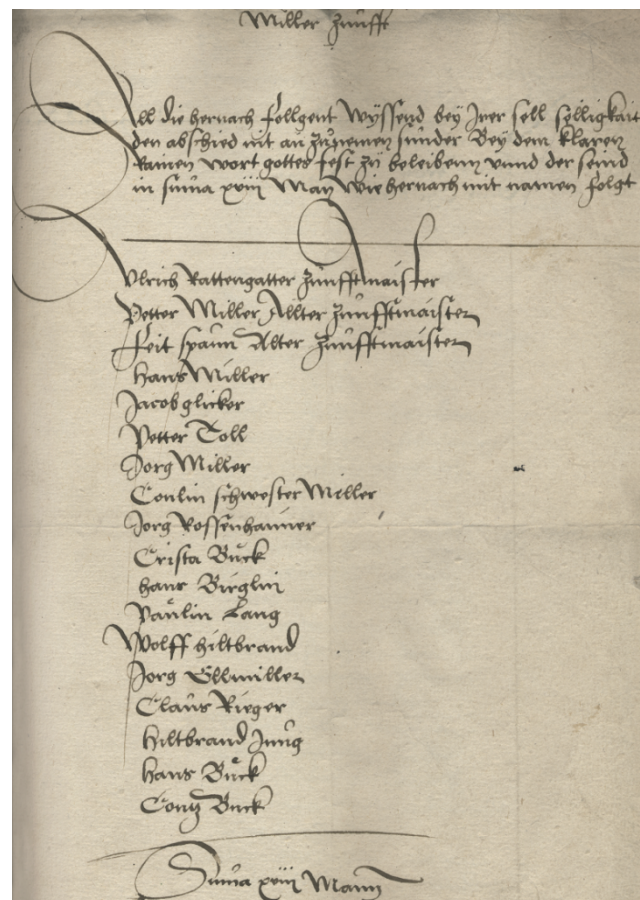 Miller Zunfft
All die hernach follgent wyssend bey Irer sell selligkait
den abschied nit an zunemen sunder Bey dem klaren
Rainen wort gottes fest zu beleibenn vnnd der seind
in suma xviij Man wie hernach mit namen folgt
Vlrich Rattengatter Zunfftmaister
Petter Miller Allter Zunfftmaister
Feit span Alter Zunfftmaister
Hans Miller
Jacob glicker
Petter Toll
Jorg Miller
Conlin schwester Miller
Jorg Rossenhamer
Crista Buck
hans Birglin
Paulin Lang
Wolff hiltbrand
Jorg Ellmiller
Claus Rieger
Hiltbrand Jung
hans Buck
Contz Buck
Suma xviij Mann